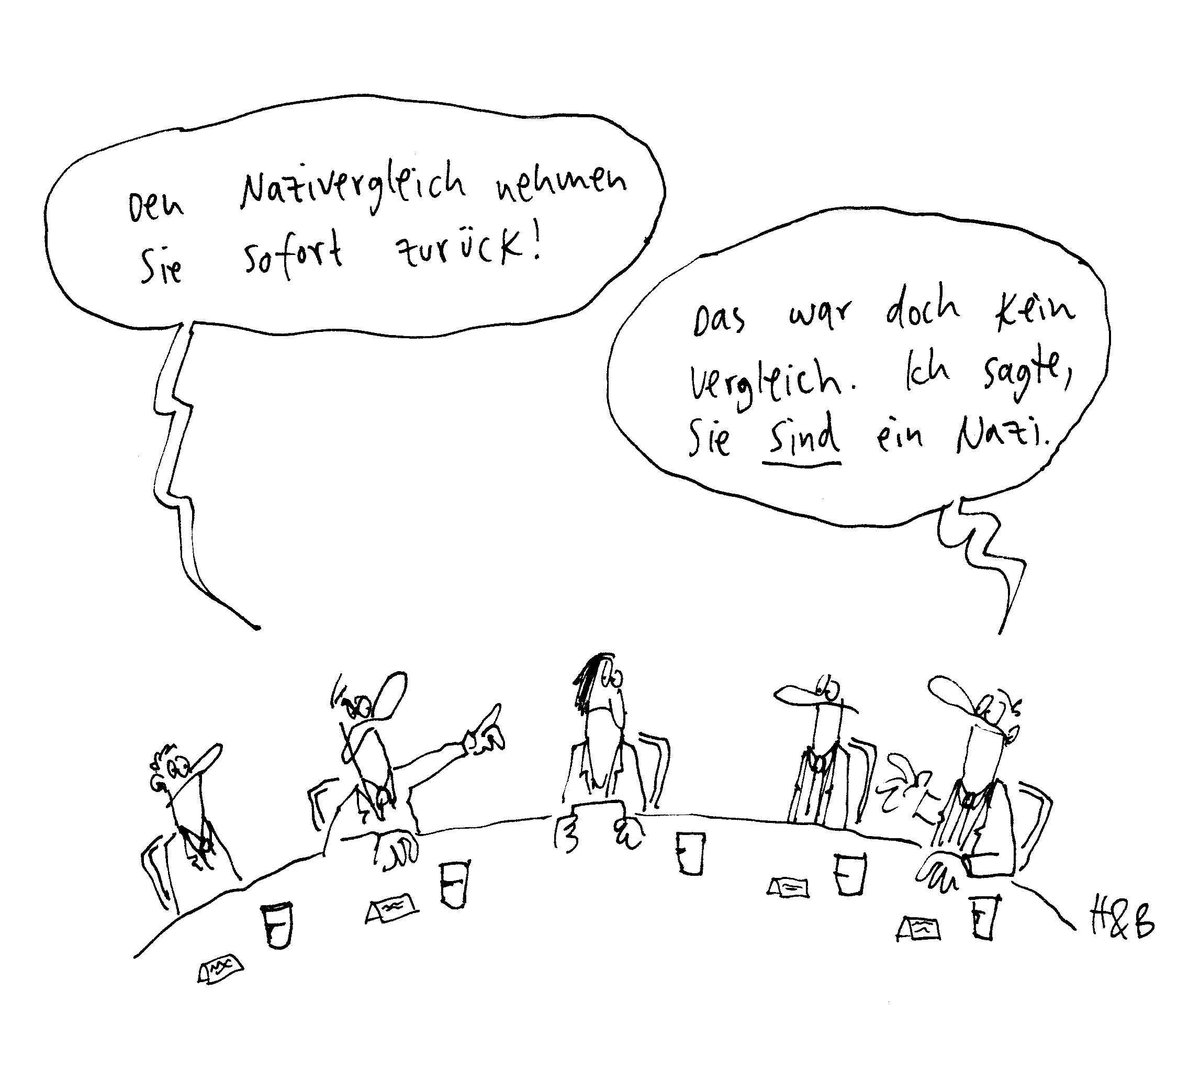 Den Nazivergleich nehmen
Sie sofort zurück!
Das war doch kein
Vergleich. Ich sagte,
Sie sind ein Nazi.
H&B